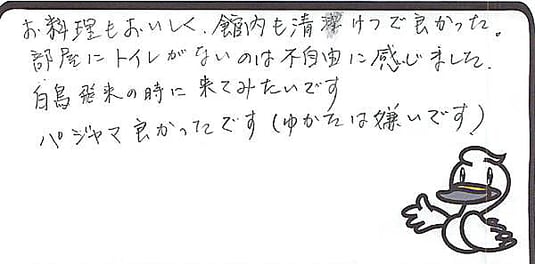 お料理もおいしく、館内も清潔けつで良かった。
部屋にトイレがないのは不自由に感じました。
白鳥飛来の時に来てみたいです
パジャマ良かったです(ゆかたは嫌いです)